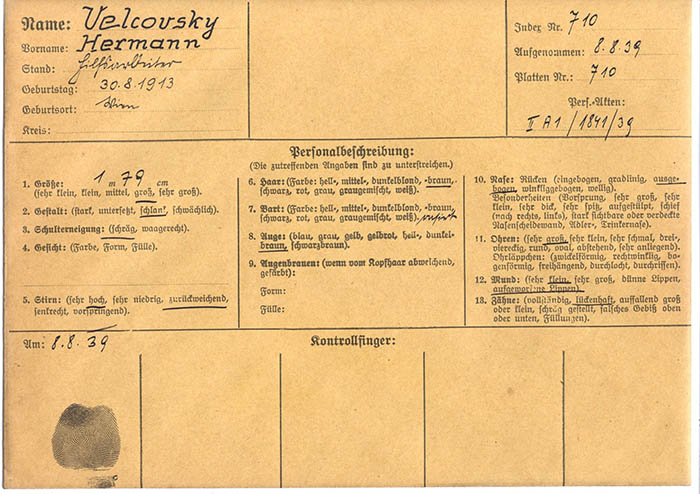 Name: Velcovsky
Vorname: Hermann
Stand: Hilfsarbeiter
Geburtstag: 30.8.1913
Geburtsort: Wien
Kreis:
Index Nr. 710
Aufgenommen: 8.8.39
Platten Nr.: 710
Pers.-Akten:
II A1/1841/39
Personalbeschreibung:
(Die zutreffenden Angaben sind zu unterstreichen.)
1. Größe: 1 m 79 cm
(sehr klein, klein, mittel, groß, sehr groß).
2. Gestalt: (stark, untersetzt, schlank, schwächlich).
3. Schulterneigung: (schräg, waagerecht).
4. Gesicht: (Farbe, Form, Fülle).
5. Stirn: (sehr hoch, sehr niedrig, zurückweichend,
senkrecht, vorspringend).
6. Haar: (Farbe: hell-, mittel-, dunkelblond, -braun,
schwarz, rot, grau, graugemischt, weiß).
7. Bart: (Farbe: hell-, mittel-, dunkelblond, -braun,
schwarz, rot, grau, graugemischt, weiß). rasiert
8. Auge: (blau, grau, gelb, gelbrot, hell-, dunkel-
braun, schwarzbraun).
9. Augenbrauen: (wenn vom Kopfhaar abweichend,
gefärbt):
Form:
Fülle:
10. Nase: Rücken (eingebogen, gradlinig, ausge-
bogen, winkliggebogen, wellig).
Besonderheiten (Vorsprung, sehr groß, sehr
klein, sehr dick, sehr spitz, aufgestülpt, schief
(nach rechts, links), stark sichtbare oder verdeckte
Nasenscheidewand, Adler-, Trinkernase).
11. Ohren: (sehr groß, sehr klein, sehr schmal, drei-,
viereckig, rund, oval, abstehend, sehr anliegend).
Ohrläppchen: (zwickelförmig, rechtwinklig, bo-
genförmig, freihängend, durchlocht, durchrissen).
12. Mund: (sehr klein, sehr groß, dünne Lippen,
aufgeworfene Lippen).
13. Zähne: (vollständig, lückenhaft, auffallend groß
oder klein, schräg gestellt, falsches Gebiß oben
oder unten, Füllungen).
Am: 8.8.39
Kontrollfinger: